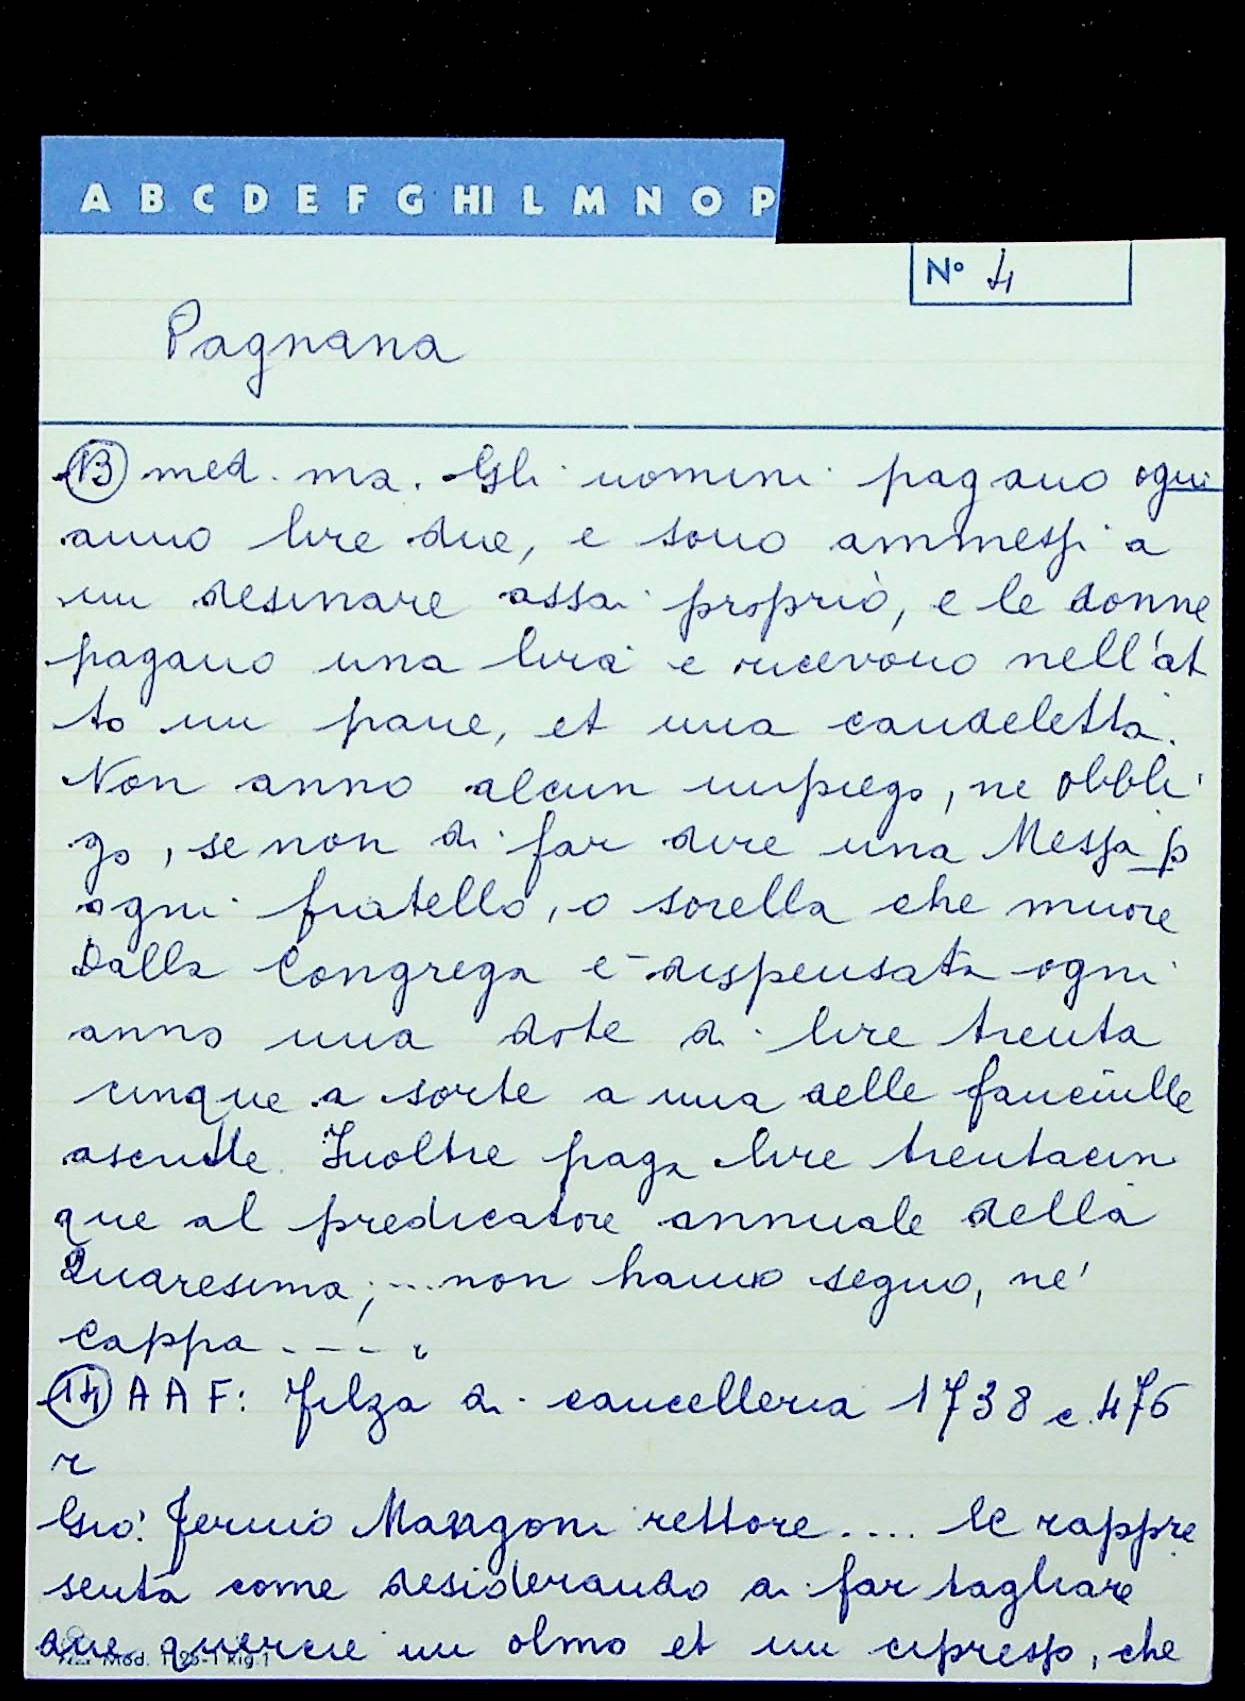 A B C D E F G HI L M N O P
Nº 4
Pagnana
(13) med. ma. Gli uomini pagano ogni
anno lire due, e sono ammessi a
un desinare assai propriò, e le donne
pagano una lira e ricevono nell'at
to un pane, et una candeletta.
Non anno alcun impiego, ne obbli
go, se non di far dire una Messa p
ogni fratello, o sorella che muore
Dalla Congrega e dispensata ogni
anno una dote di lire trenta
cinque a sorte a una delle fanciulle
ascritte. Inoltre paga lire trentacin
que al predicatore annuale della
Quaresima; ... non hanno segno, ne'
Cappa ----
(14) A A F: Filza di cancelleria 1738 c. 476
r
Gio: Fermio Mangoni rettore .... le rappre
senta come desiderando di far tagliare
due quercie un olmo et un cipresso, che
Mod. 1